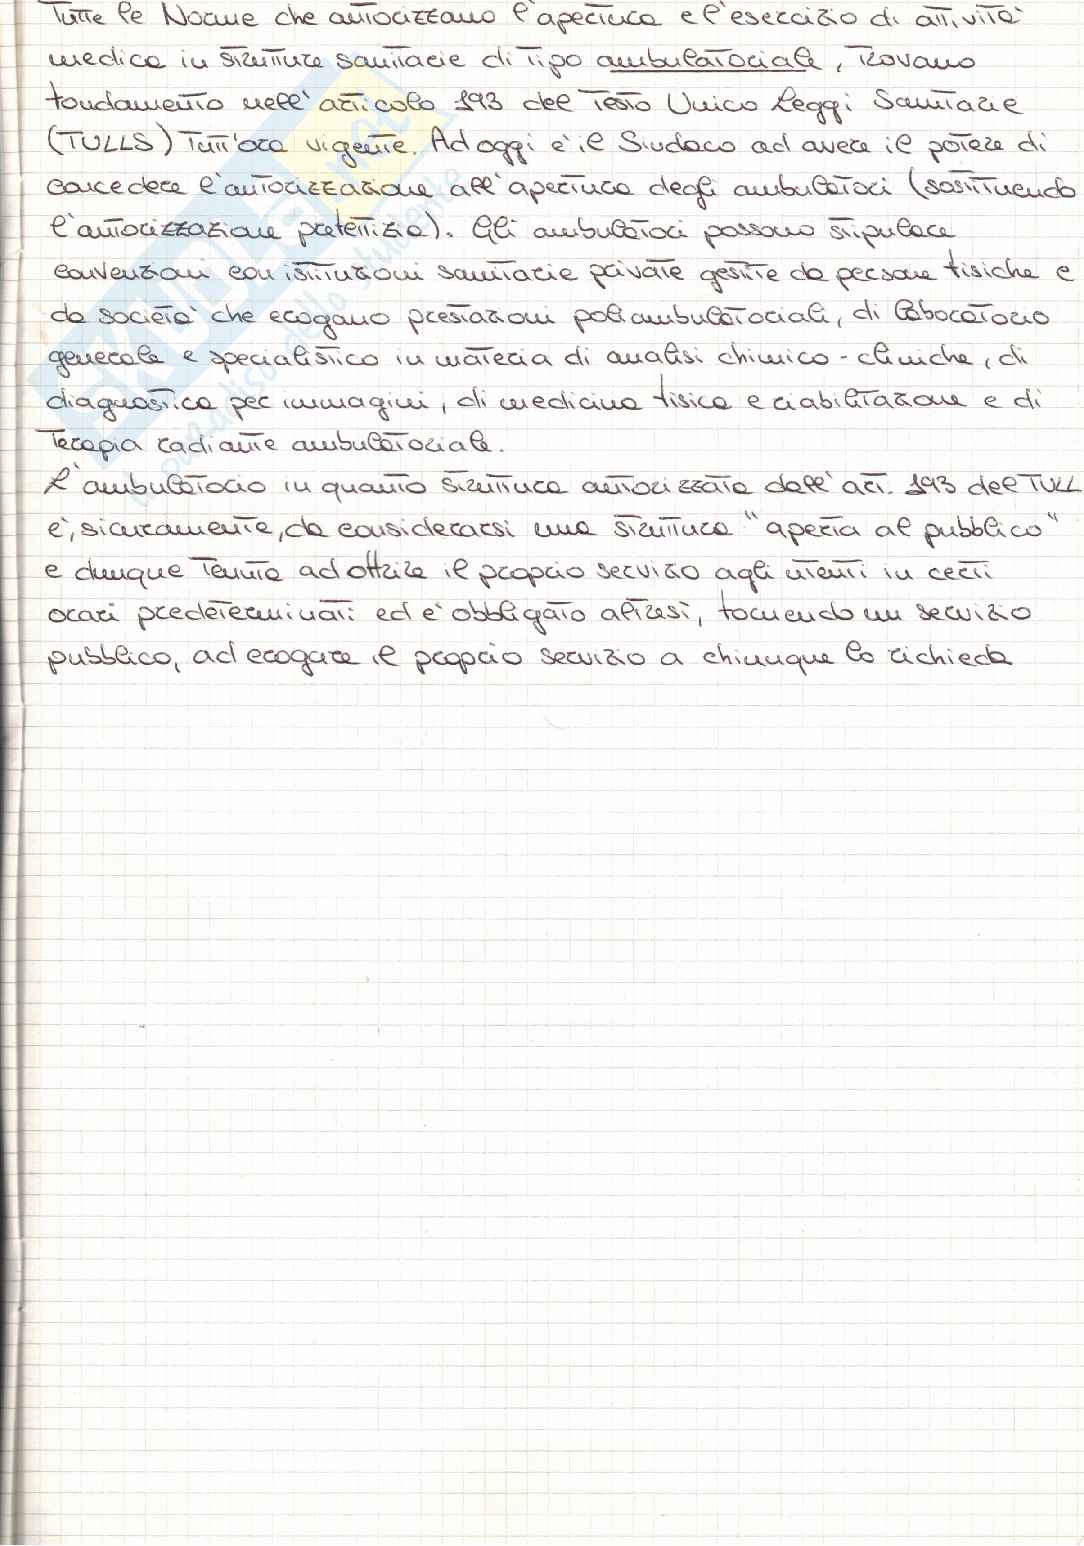 Tutte le Norme che autorizzano l'apertura e l'esercizio di attività
medica in strutture sanitarie di tipo ambulatoriale, trovano
fondamento nell'articolo 193 del Testo Unico Leggi Sanitarie
(TULLS) tutt'ora vigente. Ad oggi è il Sindaco ad avere il potere di
concedere l'autorizzazione all'apertura degli ambulatori (sostituendo
l'autorizzazione prefettizia). Gli ambulatori possono stipulare
convenzioni con istituzioni sanitarie private gestite da persone fisiche e
da società che erogano prestazioni poliambulatoriali, di laboratorio
generale e specialistico in materia di analisi chimico-cliniche, di
diagnostica per immagini, di medicina fisica e riabilitazione e di
terapia radiante ambulatoriale.
L'ambulatorio in quanto struttura autorizzata dall'art. 193 del TULL
è, sicuramente, da considerarsi una struttura "aperta al pubblico"
e dunque tenuta ad offrire il proprio servizio agli utenti in certi
orari predeterminati ed è obbligato altresì, fornendo un servizio
pubblico, ad erogare il proprio servizio a chiunque lo richieda
SKUOLA.net
il paradiso dello studente